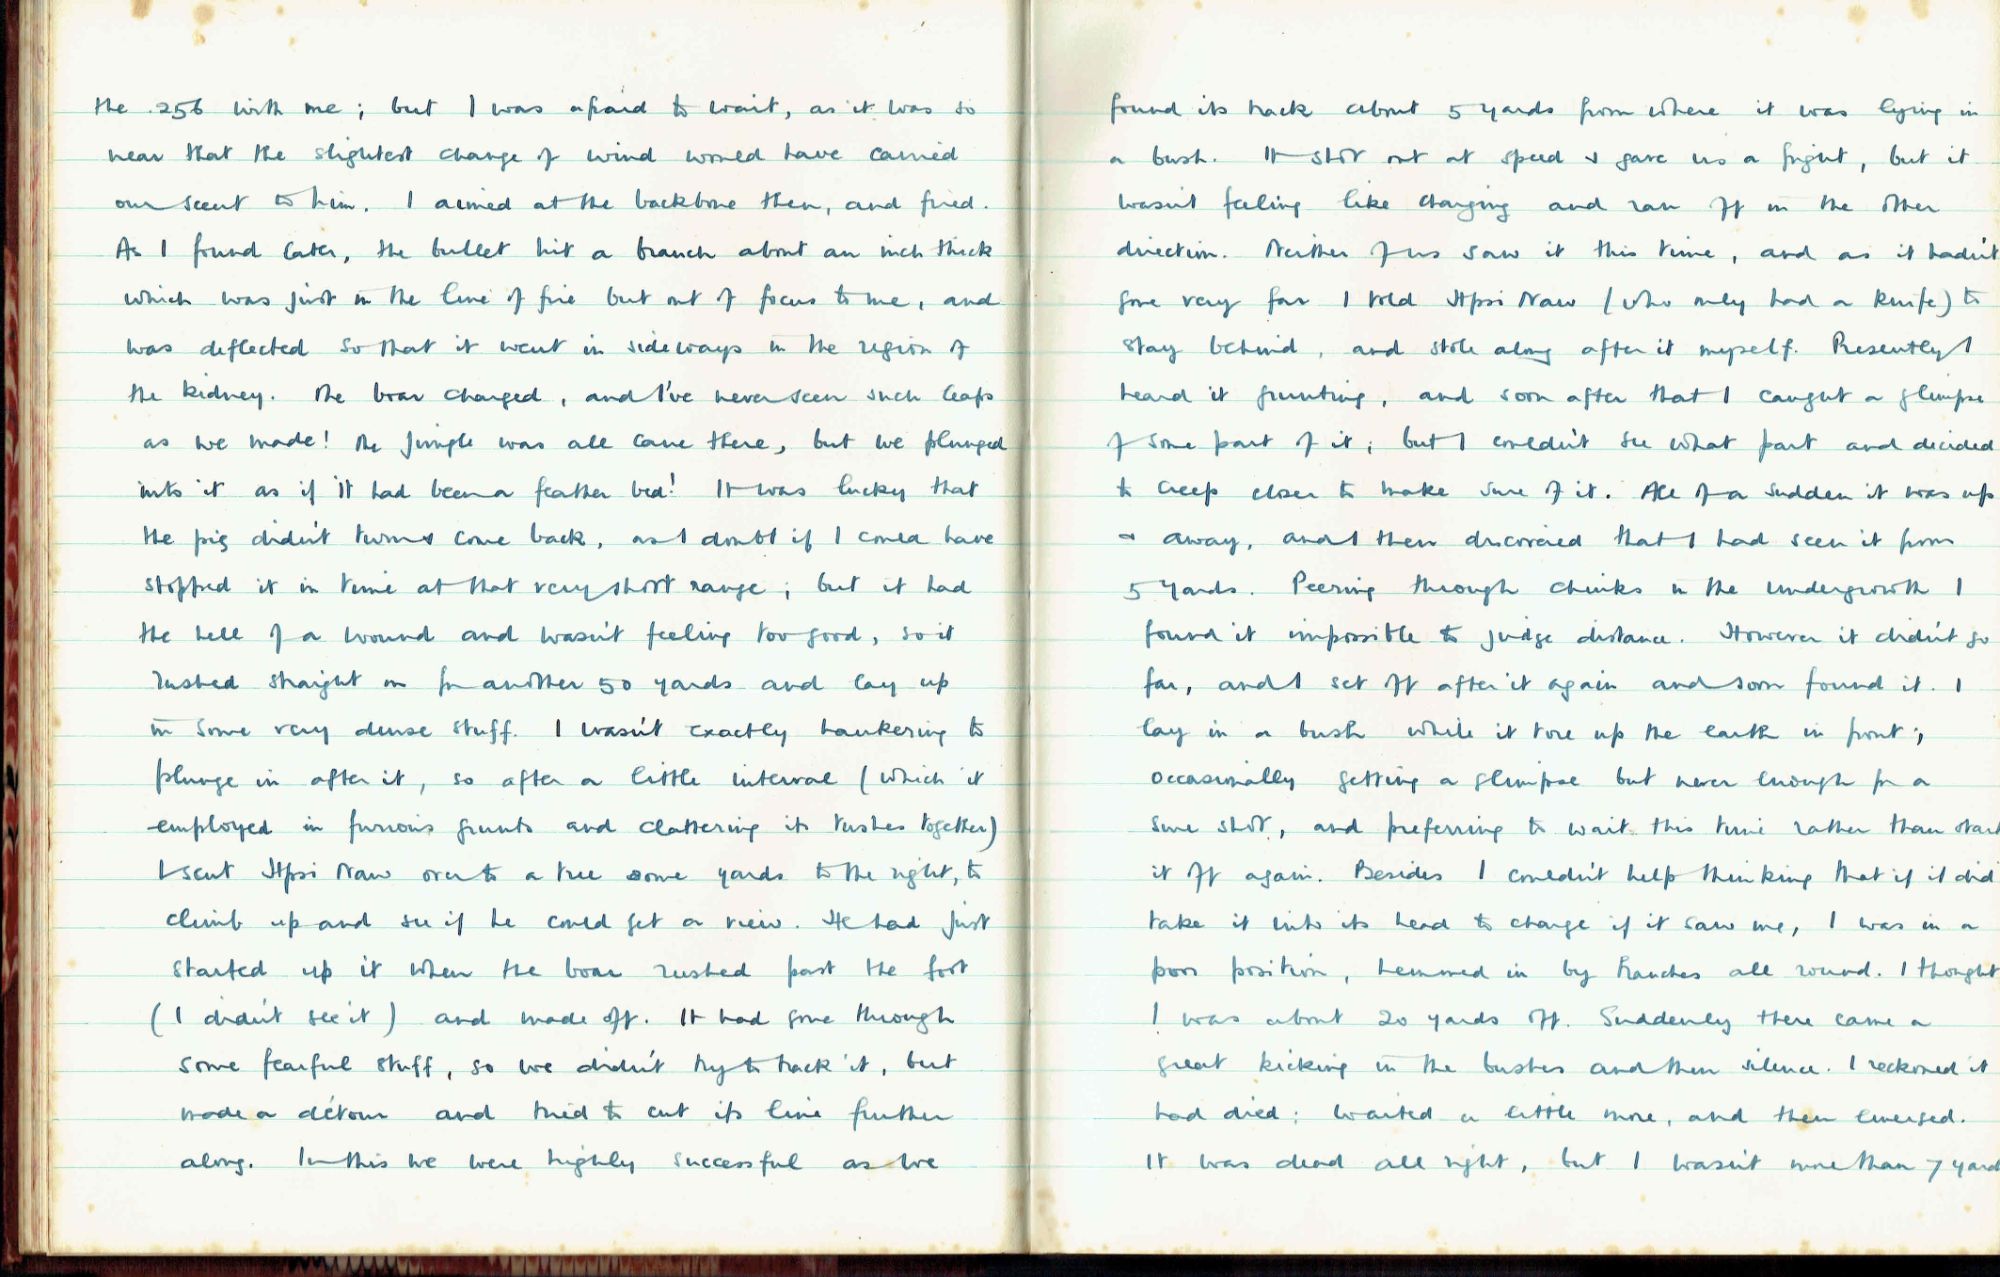 the .256 with me; but I was afraid to wait, as it was so
near that the slightest change of wind would have carried
our scent to him. I aimed at the backbone then, and fired.
As I found later, the bullet hit a branch about an inch thick
which was just in the line of fire but out of focus to me, and
was deflected so that it went in sideways in the region of
the kidney. The boar charged, and I've never seen such leaps
as we made! The jungle was all cane there, but we plunged
into it as if it had been a feather bed! It was lucky that
the pig didn't turn & come back, as I doubt if I could have
stopped it in time at that very short range; but it had
the hell of a wound and wasn't feeling too good, so it
rushed straight on for another 50 yards and lay up
in some very dense stuff. I wasn't exactly hankering to
plunge in after it, so after a little interval (which it
employed in furious grunts and clattering its tushes together)
I sent Hpsi Naw over to a tree some yards to the right, to
climb up and see if he could get a view. He had just
started up it when the boar rushed past the foot
(I didn't see it) and made off. It had gone through
some fearful stuff, so we didn't try to track it, but
made a détour and tried to cut its line further
along. In this we were highly successful as we
found its track about 5 yards from where it was lying in
a bush. It shot out at speed & gave us a fright, but it
wasn't feeling like charging and ran off in the other
direction. Neither of us saw it this time, and as it hadn't
gone very far I told Hpsi Naw (who only had a knife) to
stay behind, and stole along after it myself. Presently I
heard it grunting, and soon after that I caught a glimpse
of some part of it; but I couldn't see what part and decided
to creep closer to make sure of it. All of a sudden it was up
& away, and I then discovered that I had seen it from
5 yards. Peering through chinks in the undergrowth I
found it impossible to judge distance. However it didn't go
far, and I set off after it again and soon found it. I
lay in a bush while it tore up the earth in front;
occasionally getting a glimpse but never enough for a
sure shot, and preferring to wait this time rather than start
it off again. Besides I couldn't help thinking that if it did
take it into its head to charge if it saw me, I was in a
poor position, hemmed in by branches all round. I thought
I was about 20 yards off. Suddenly there came a
great kicking in the bushes and then silence. I reckoned it
had died: waited a little more, and then emerged.
It was dead all right, but I wasn't more than 7 yards